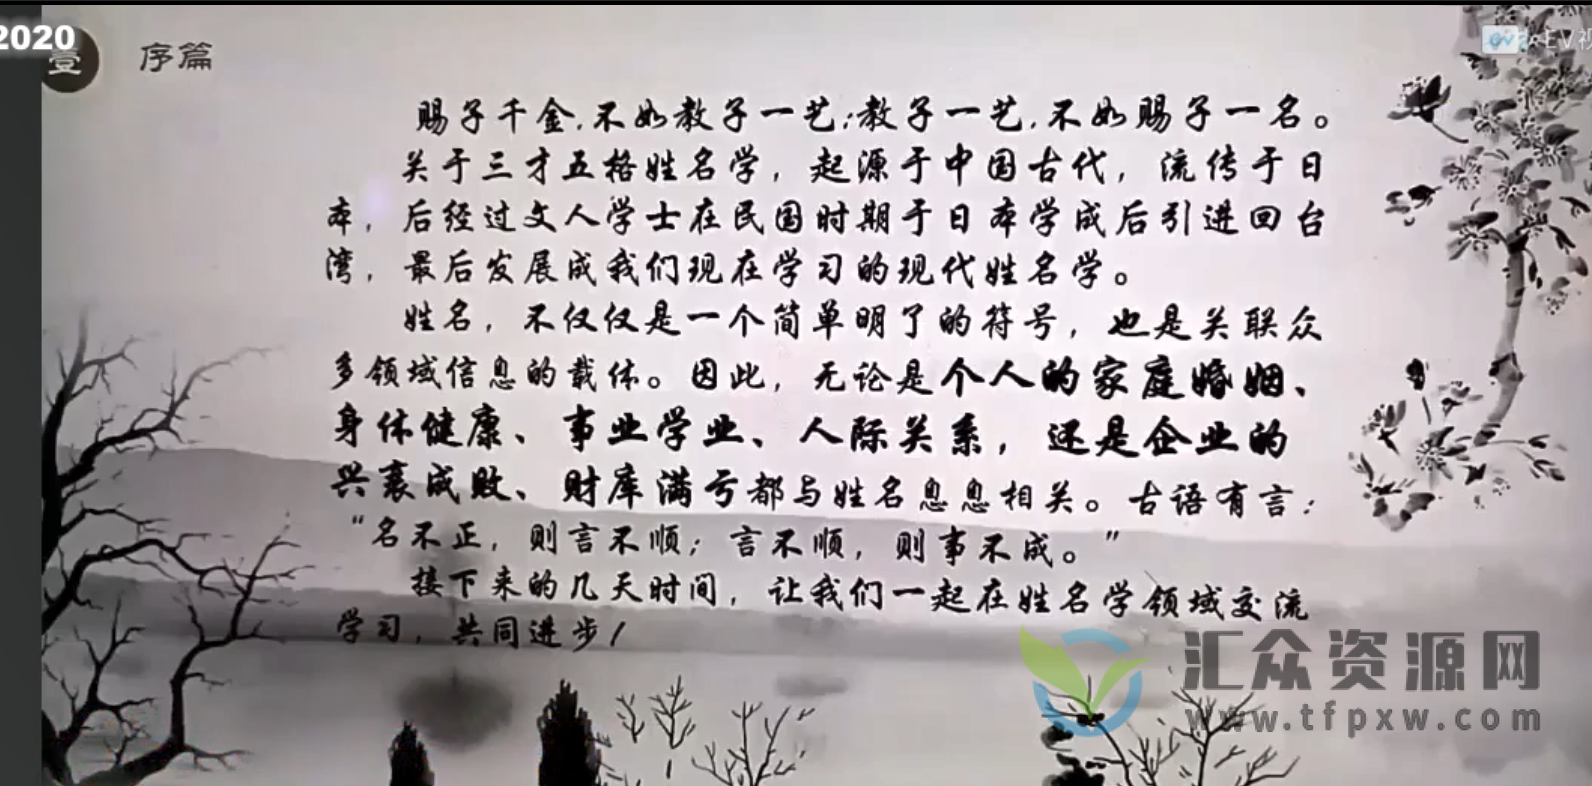 2020
壹 序篇
EV视
赐子千金,不如教子一艺;教子一艺,不如赐子一名。
关于三才五格姓名学，起源于中国古代，流传于日
本，后经过文人学士在民国时期于日本学成后引进回台
湾，最后发展成我们现在学习的现代姓名学。
姓名，不仅仅是一个简单明了的符号，也是关联众
多领域信息的载体。因此，无论是个人的家庭婚姻、
身体健康、事业学业、人际关系，还是企业的
兴衰成败、财库满亏都与姓名息息相关。古语有言：
“名不正，则言不顺；言不顺，则事不成。”
接下来的几天时间，让我们一起在姓名学领域交流
学习，共同进步！
汇众资源网
www.tfpxw.com